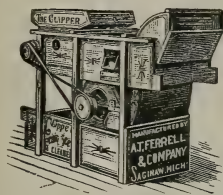 THE CLIPPER
MANUFACTURED BY
A.T. FERRELL
& COMPANY
SAGINAW, MICH